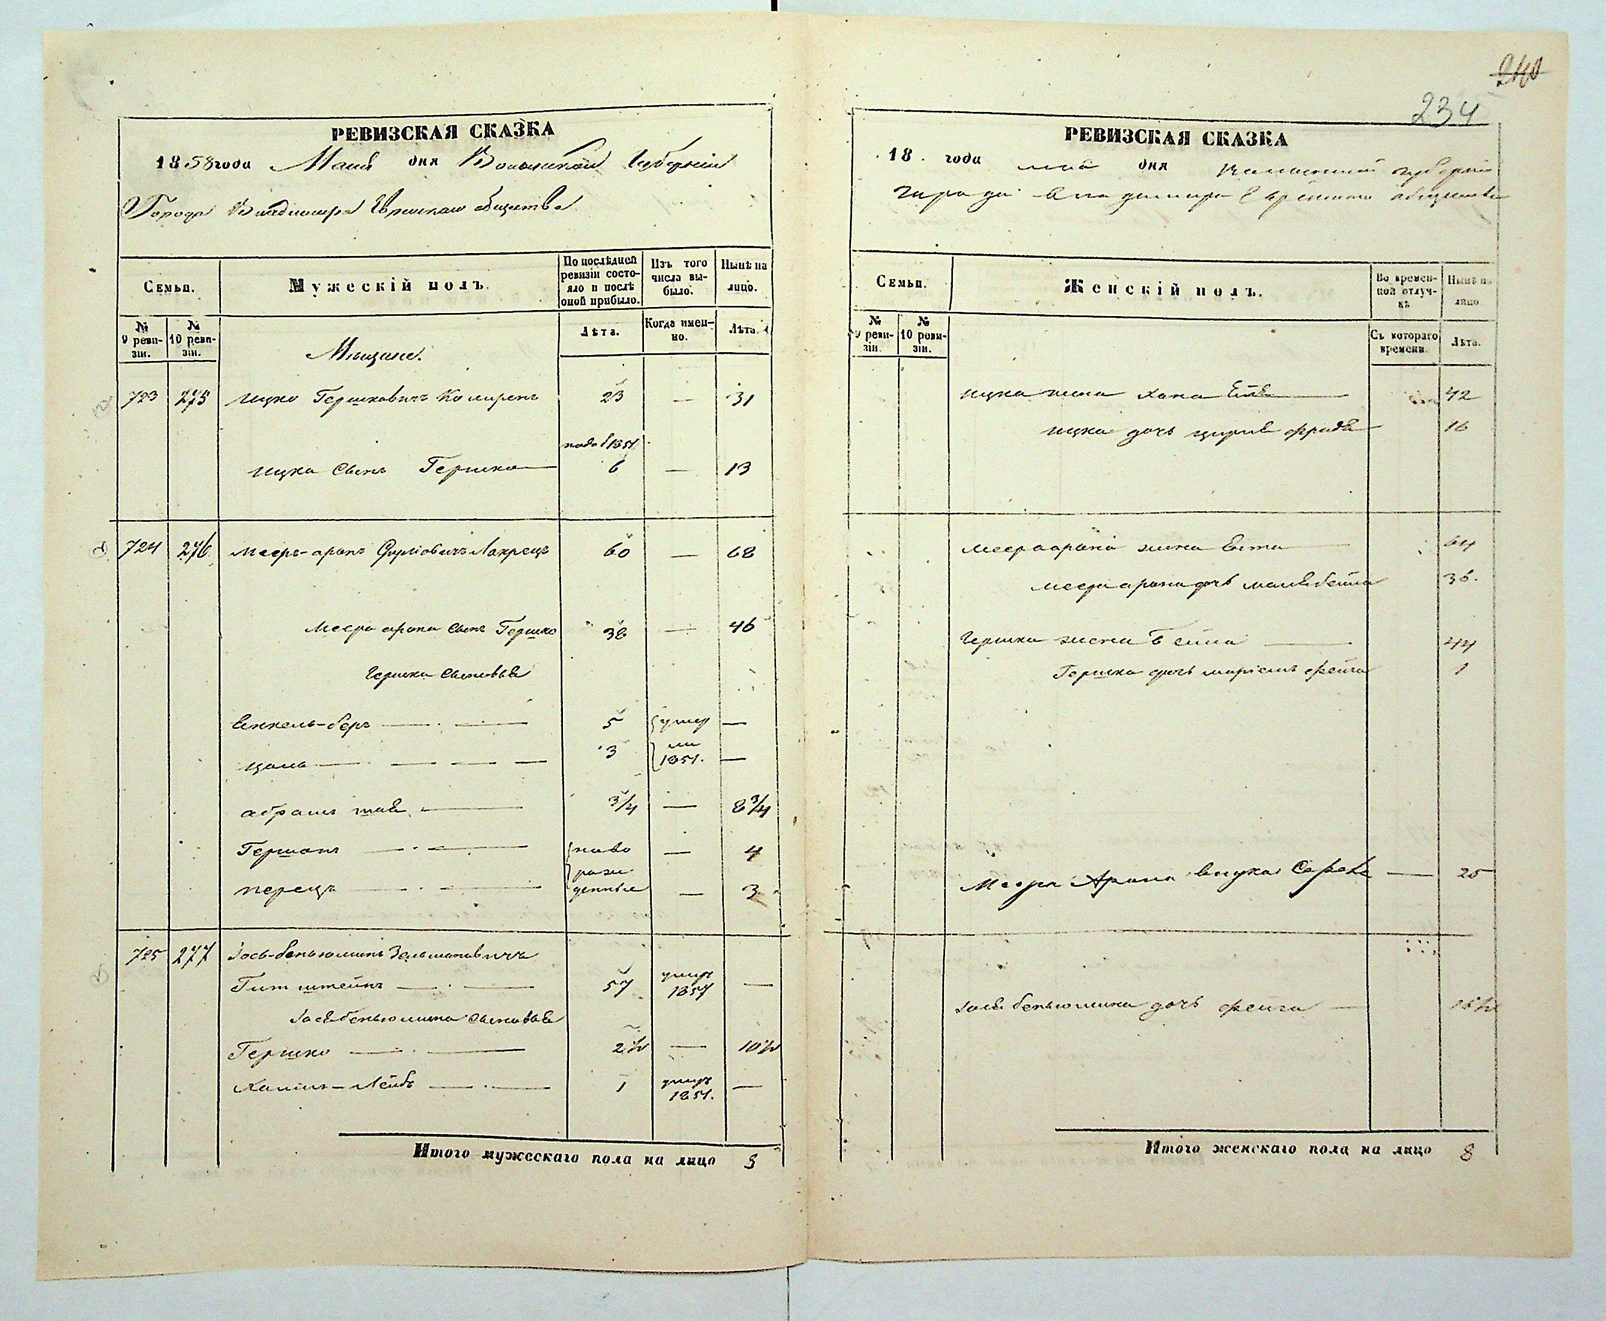 240
234
РЕВИЗСКАЯ СКАЗКА
1858 года Мая дня Волынской Губерніи
Города Владимира Еврейскаго общества
Семьи.
Мужескій полъ.
По послѣдней ревизіи состояло и послѣ оной прибыло.
Изъ того числа выбыло.
Нынѣ на лицо.
№ 9 ревизіи.
№ 10 ревизіи.
Лѣта.
Когда именно.
Лѣта.
Мѣщане.
723 275 Ицко Гершковичъ 23 — 31
1851
Ицка сынъ Гершко 6 — 13
724 276 Мееръ-аронъ 60 — 68
Меера арона сынъ Гершко 38 — 46
Гершка сыновья
Янкель-беръ 5 —
3 1851. —
абрамъ 3/4 — 8 3/4
Гершонъ ново — 4
перецъ рожденные — 3
725 277 Іось-беньюминъ Зельмановичъ
Гитштейнъ 57 умеръ 1857 —
беньюмина сыновья
Гершко 2 1/2 — 10 1/2
Хаимъ-Лейбъ 1 умеръ 1851. —
Итого мужескаго пола на лицо 8
РЕВИЗСКАЯ СКАЗКА
18 года мая дня Волынской губерніи
города Владимира Еврейскаго общества
Семьи.
Женскій полъ.
Во временной отлучкѣ
Нынѣ на лицо
№ 9 ревизіи.
№ 10 ревизіи.
Съ котораго времени.
Лѣта.
Ицка жена Хана 42
Ицка дочь 16
Меера арона жена Ента 64
Меера арона дочь 36.
Гершка жена 44
Гершка дочь маріемъ фейга 1
Меера Арона внука — 25
беньюмина дочь фейга —
Итого женскаго пола на лицо 8